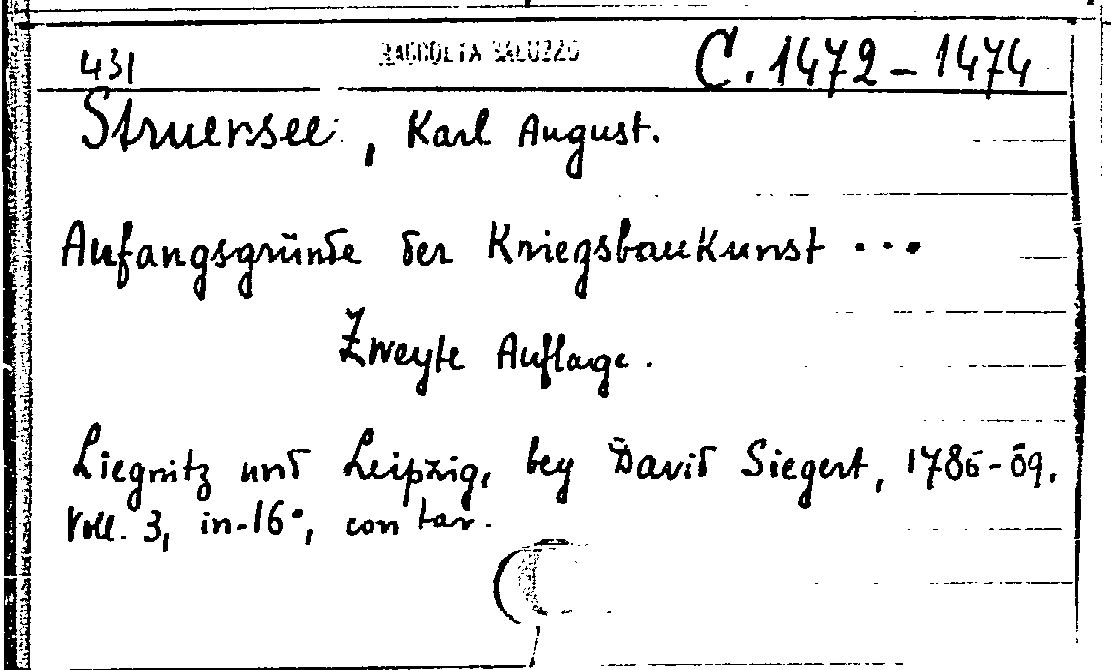 431 RACCOLTA SALUZZO C. 1472 - 1474
Struensee, Karl August.
Anfangsgründe der Kriegsbaukunst ...
Zweyte Auflage.
Liegnitz und Leipzig, bey David Siegert, 1786-89.
Voll. 3, in-16°, con tav.